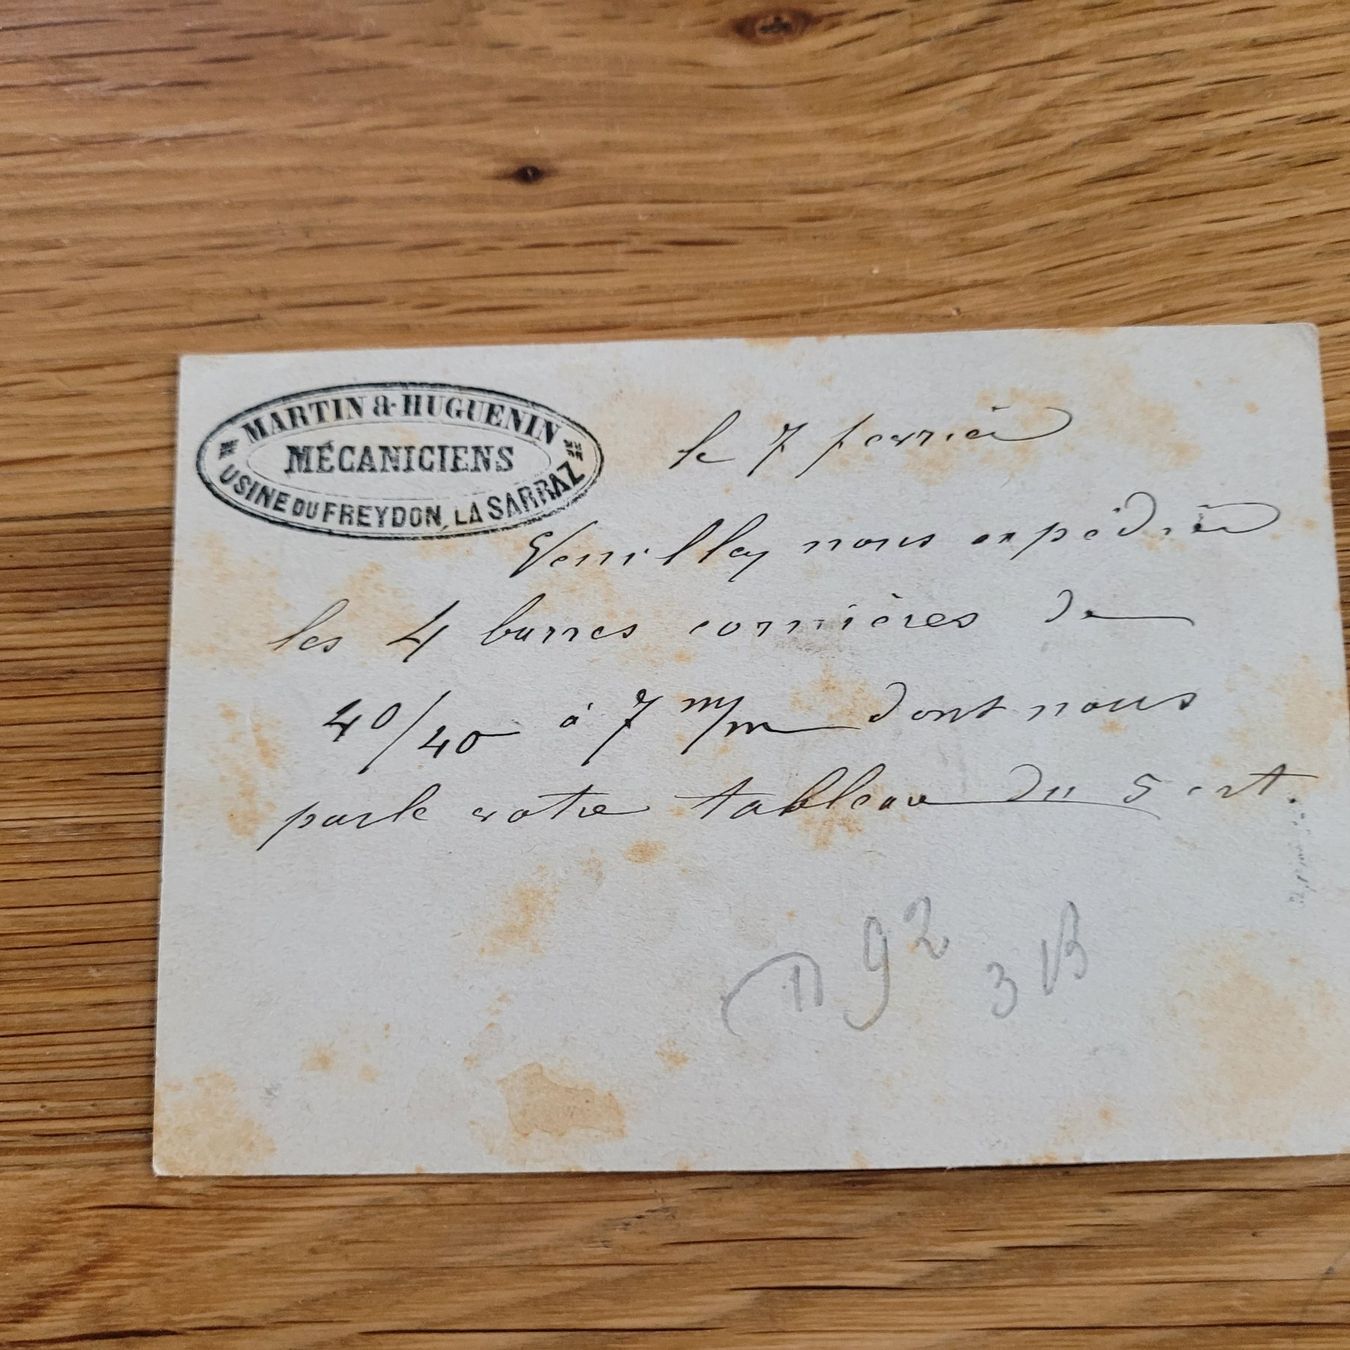 MARTIN & HUGUENIN
MÉCANICIENS
USINE DU FREYDON, LA SARRAZ
le 7 fevrier
Veuillez nous expédier
les 4 barres cornières de
40/40 à 7 m/m dont nous
parle votre tableau du 5 crt.
92
3